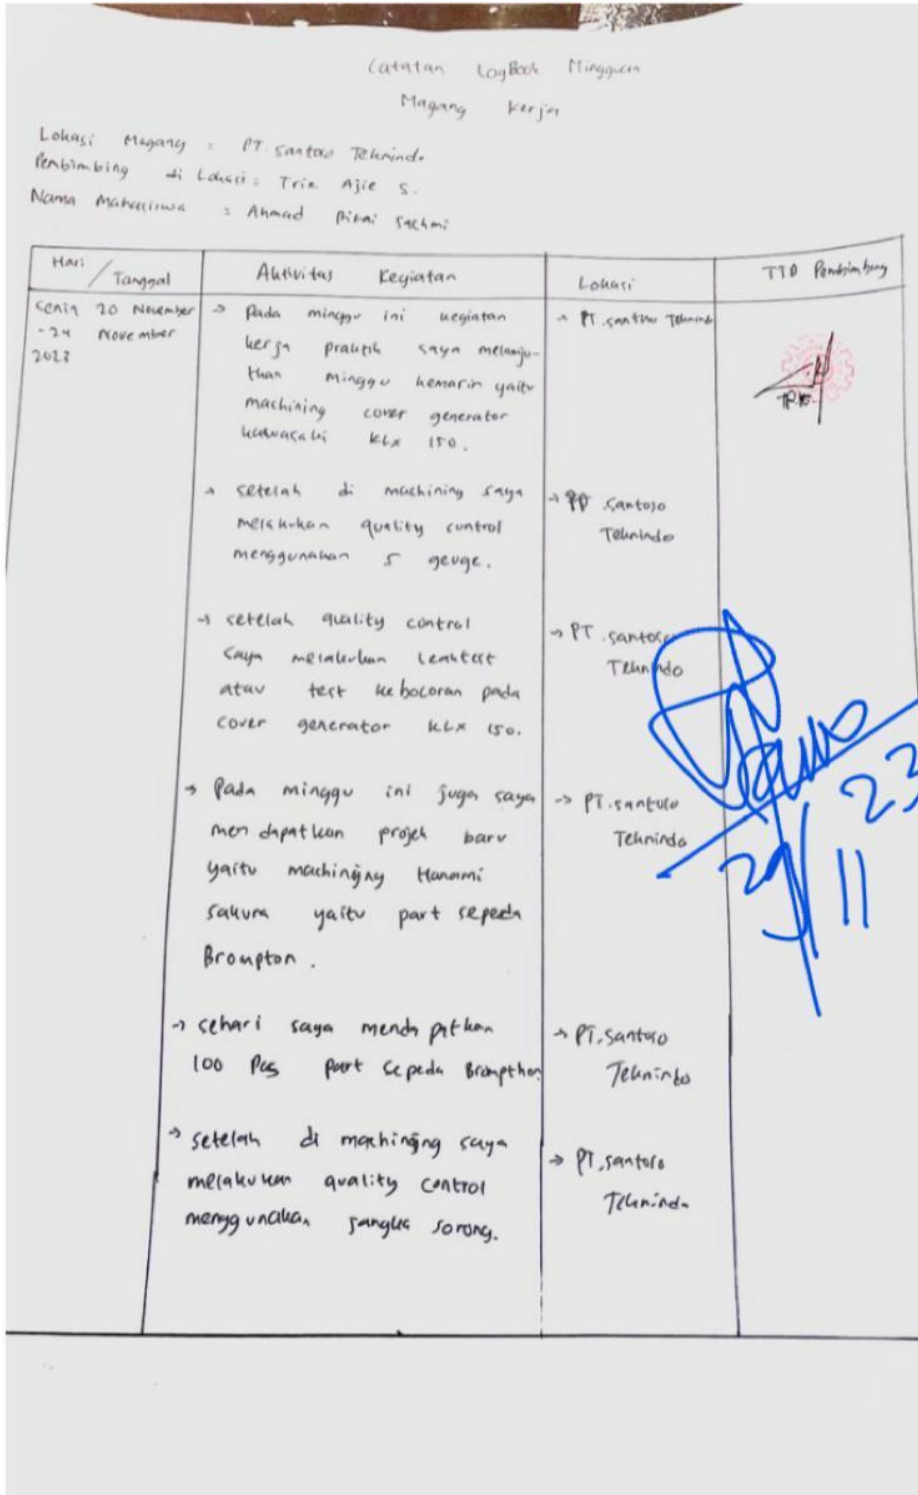 Catatan LogBook Mingguan
Magang Kerja
Lokasi Magang : PT Santoso Teknindo
Pembimbing di Lokasi : Trie Ajie S.
Nama Mahasiswa : Ahmad
Hari / Tanggal
Aktivitas Kegiatan
Lokasi
TTD Pembimbing
Senin 20 November
- 24 November
2023
→ Pada minggu ini kegiatan
kerja praktik saya melanju-
tkan minggu kemarin yaitu
machining cover generator
kawasaki KLX 150.
→ PT. Santoso Teknindo
TRIE
→ setelah di machining saya
melakukan quality control
menggunakan 5 geuge.
→ PT Santoso
Teknindo
→ setelah quality control
saya melakukan leaktest
atau test kebocoran pada
cover generator KLX 150.
→ PT. Santoso
Teknindo
→ Pada minggu ini juga saya
mendapatkan projek baru
yaitu machining Hanami
sakura yaitu part sepeda
Brompton.
→ PT. Santoso
Teknindo
29/11 23
→ sehari saya mendapatkan
100 Pcs part sepeda Brompthon.
→ PT. Santoso
Teknindo
→ setelah di machining saya
melakukan quality control
menggunakan jangka sorong.
→ PT. Santoso
Teknindo